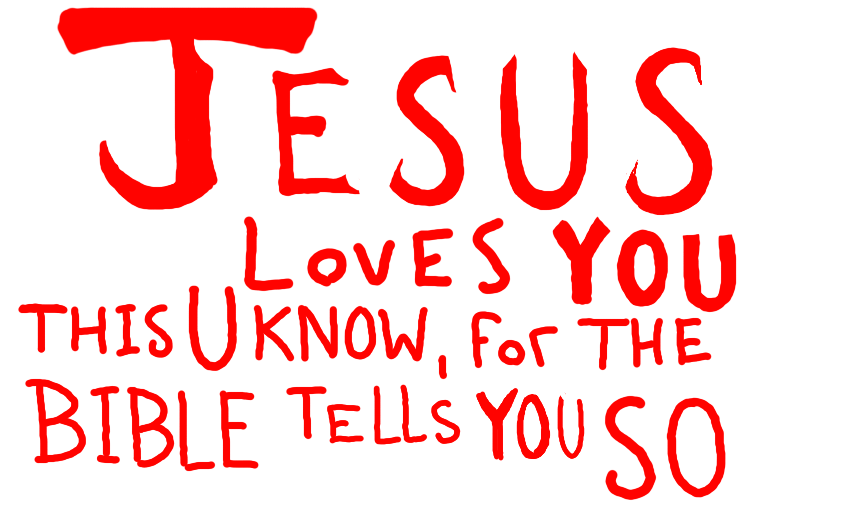 JESUS
LOVES YOU
THIS U KNOW, FOR THE
BIBLE TELLS YOU SO